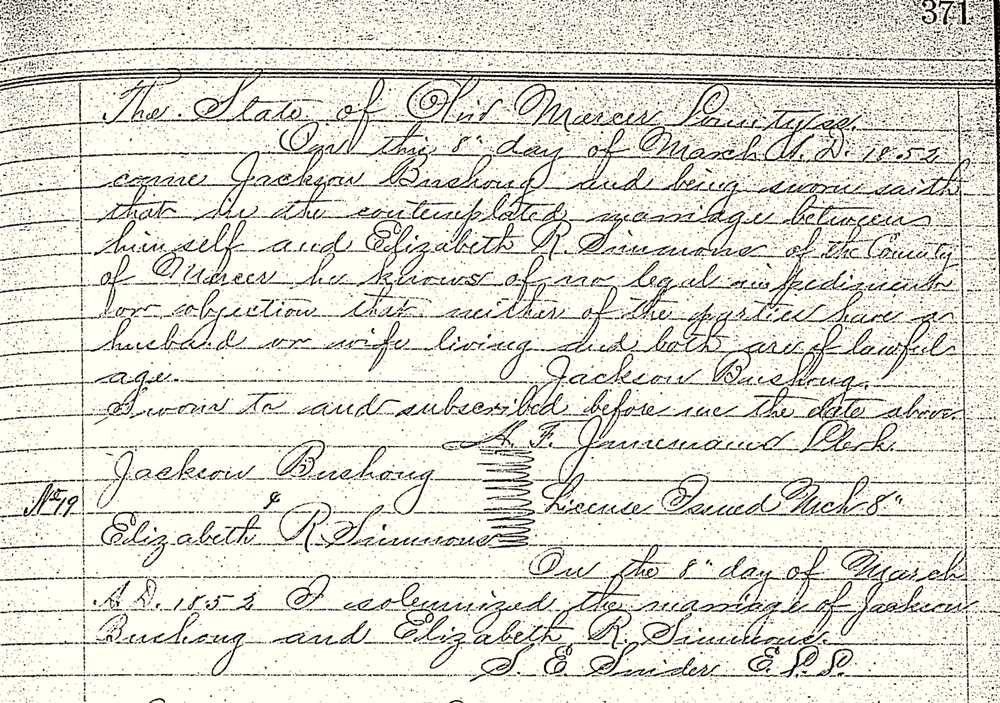 371
The State of Ohio Mercer County ss.
On this 8" day of March A. D. 1852
came Jackson Bushong and being sworn saith
that in the contemplated marriage between
himself and Elizabeth R. Simmons of the County
of Mercer he knows of no legal impediment
or objection that neither of the parties have a
husband or wife living and both are of lawful
age. Jackson Bushong.
Sworn to and subscribed before me the date above.
A. F. Clerk.
Jackson Bushong
No 79 & License Issued Mch 8"
Elizabeth R Simmons
On the 8" day of March
A D. 1852 I solemnized the marriage of Jackson
Bushong and Elizabeth R. Simmons.
S. E. Snider